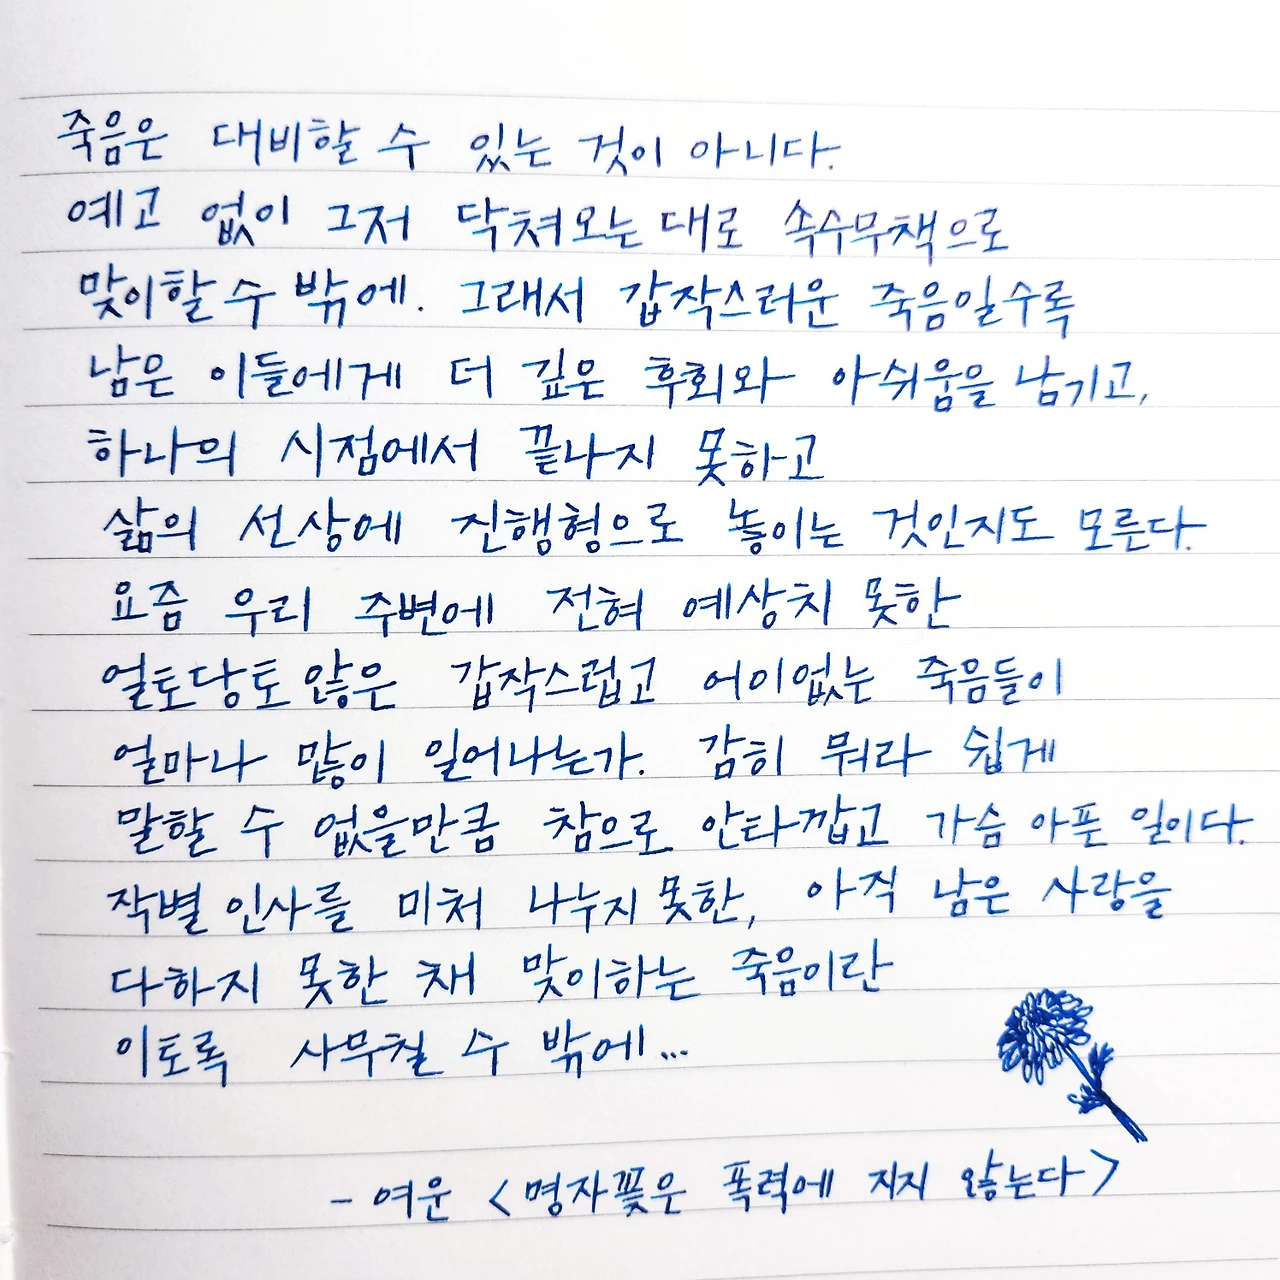 죽음은 대비할 수 있는 것이 아니다.
예고 없이 그저 닥쳐오는 대로 속수무책으로
맞이할 수 밖에. 그래서 갑작스러운 죽음일수록
남은 이들에게 더 깊은 후회와 아쉬움을 남기고,
하나의 시점에서 끝나지 못하고
삶의 선상에 진행형으로 놓이는 것인지도 모른다.
요즘 우리 주변에 전혀 예상치 못한
얼토당토 않은 갑작스럽고 어이없는 죽음들이
얼마나 많이 일어나는가. 감히 뭐라 쉽게
말할 수 없을만큼 참으로 안타깝고 가슴 아픈 일이다.
작별 인사를 미처 나누지 못한, 아직 남은 사랑을
다하지 못한 채 맞이하는 죽음이란
이토록 사무칠 수 밖에...
- 여운 <명자꽃은 폭력에 지지 않는다>